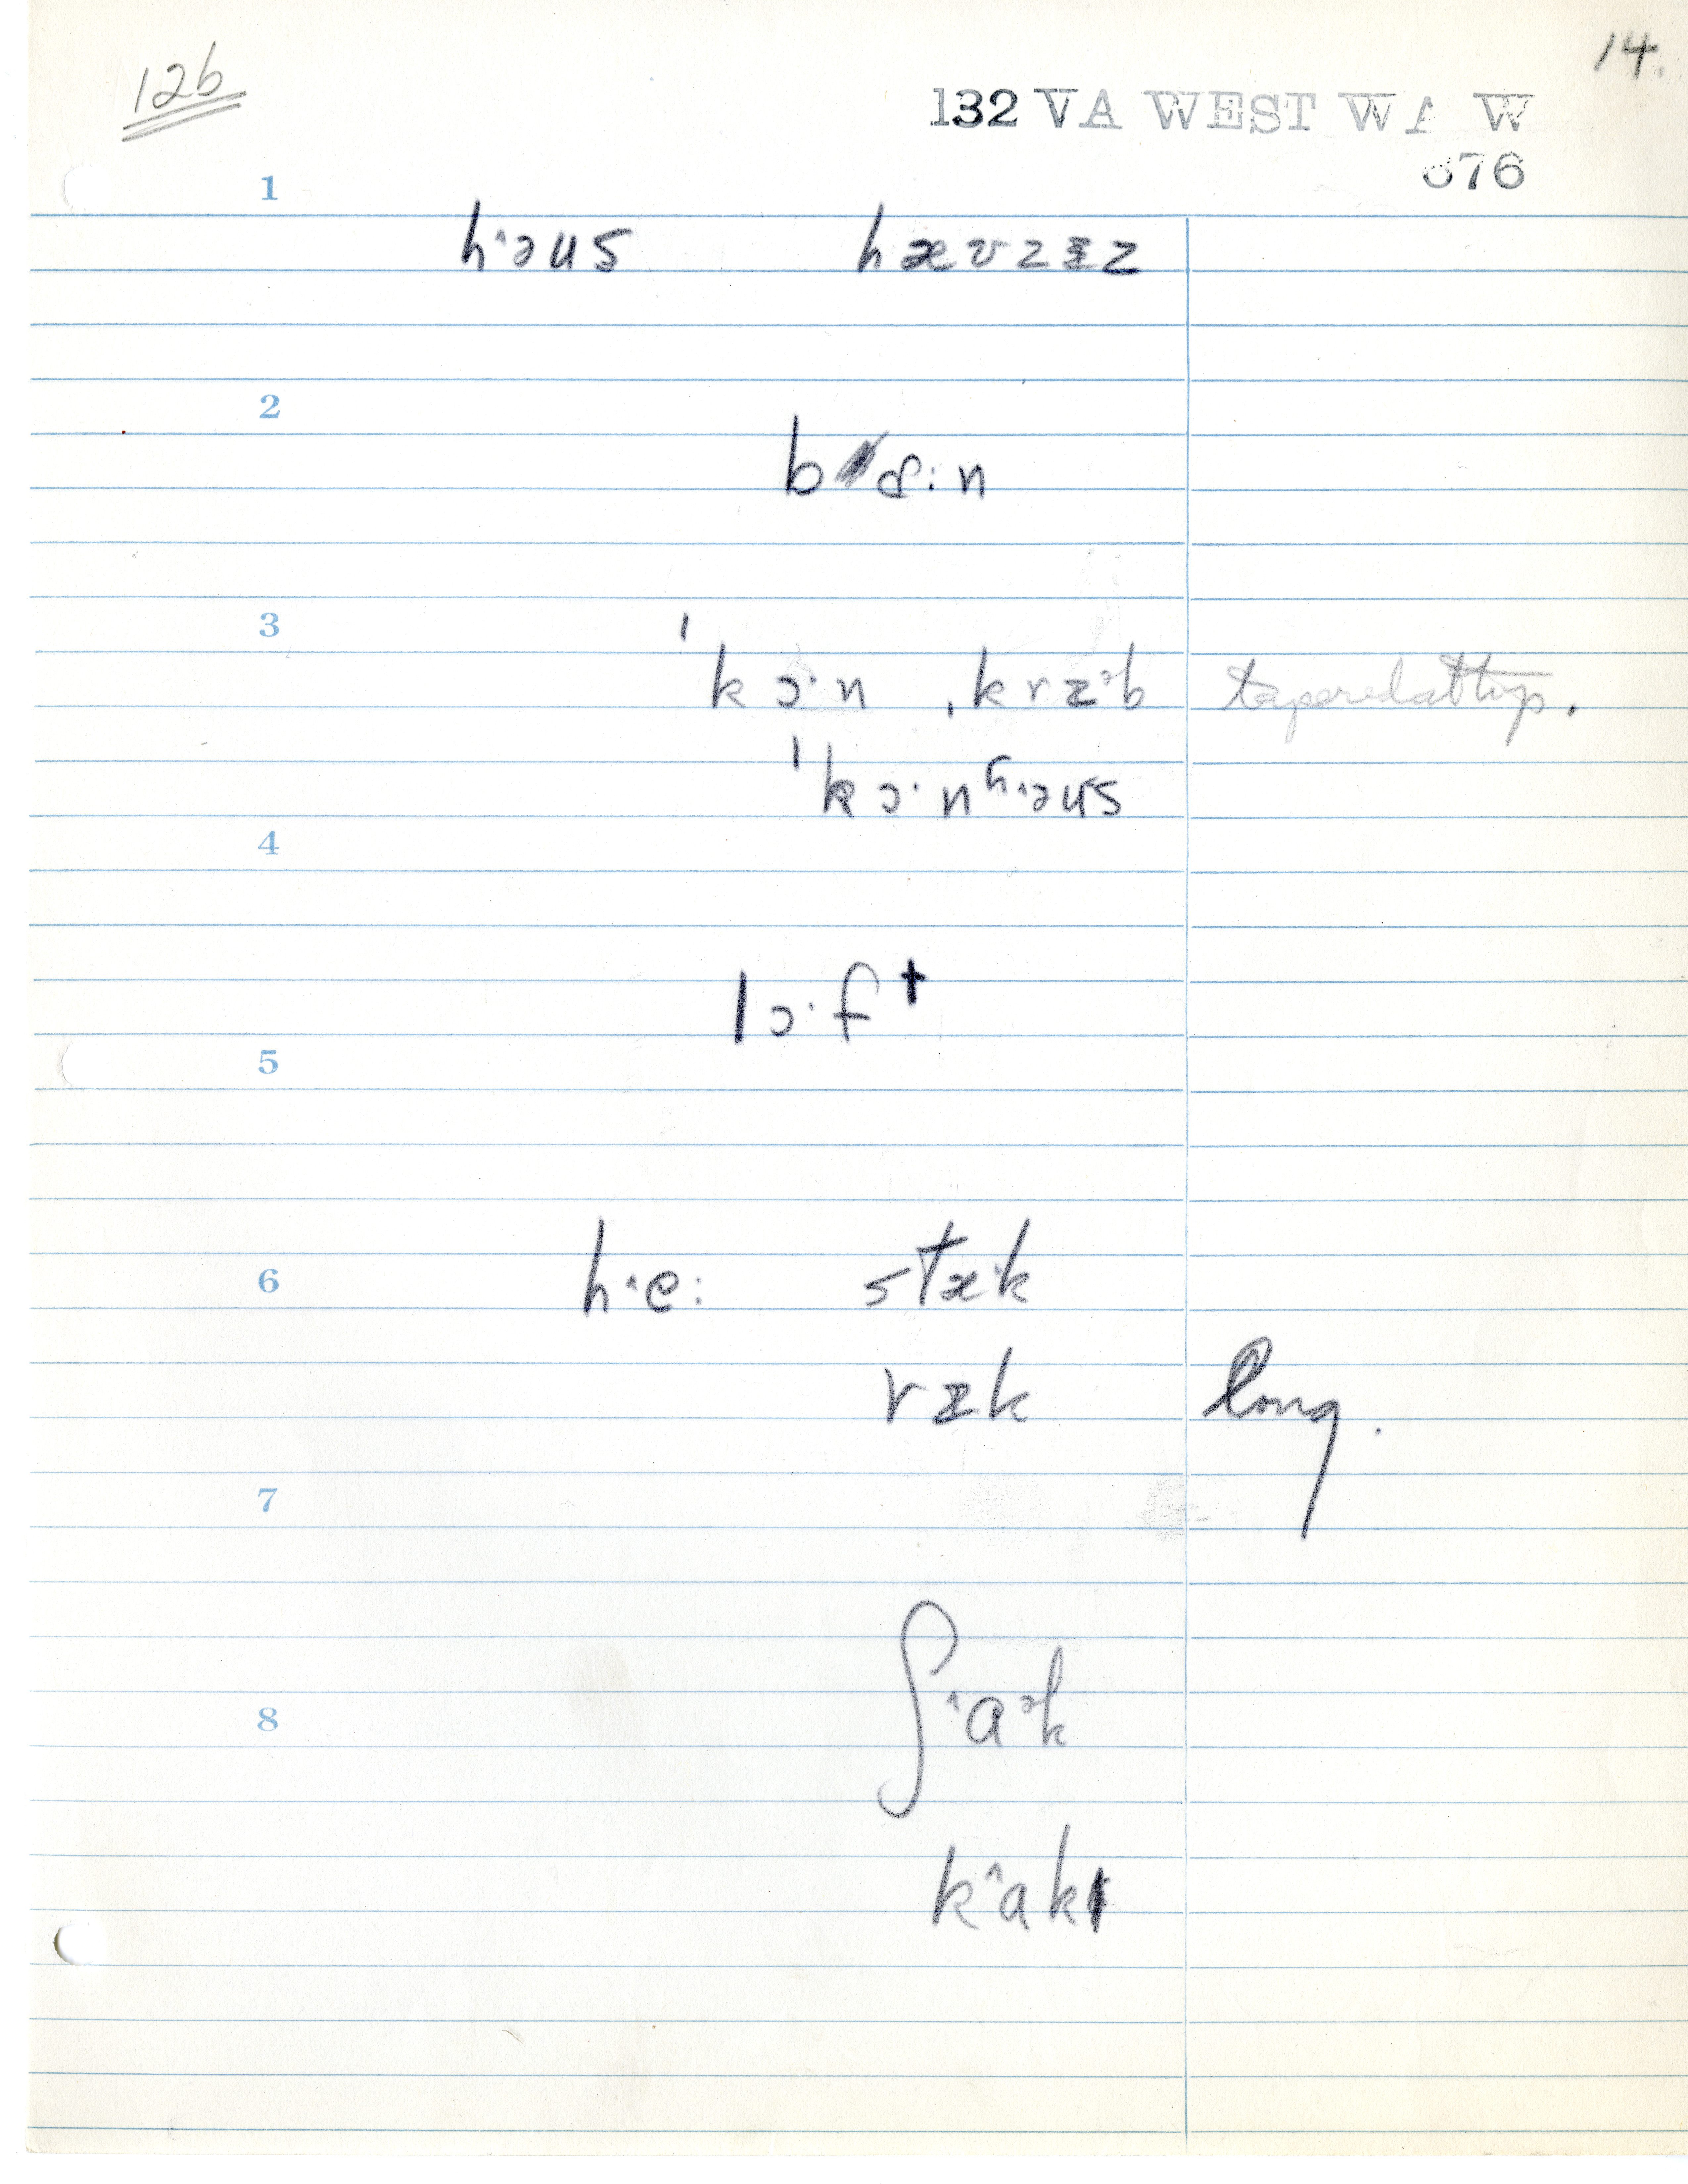 12b
14.
132 VA WEST WA W
676
1
hˑ^əus hæʊzɪ̵z
2
bɑːn
3
ˈkɔˑn ˌkrɪᵊb tapered at top.
ˈkɔˑnʰˑ^əus
4
lɔˑfᵗ
5
6
hˑ^eː stæˑk
rɪk long.
7
ʃˑ^aᵊk
8
k^ak